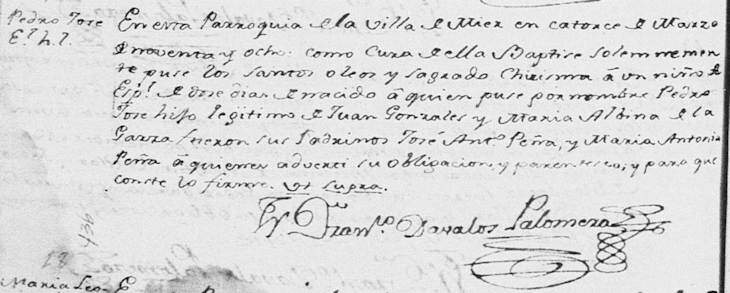 Pedro Jose
E.l h. l.
En esta Parroquia de la Villa de Mier en catorce de Marzo
de noventa y ocho: como Cura de ella Baptise solemnemen
te puse los santos oleos y sagrado Chrisma â un niño
Esp.l de dose dias de nacido â quien puse por nombre Pedro
Jose hijo legitimo de Juan Gonzales y Maria Albina de la
Garza fueron sus Padrinos José Ant.o Peña, y Maria Antonia
Peña â quienes adverti su obligacion, y parentesco, y para que
conste lo firme. Ut supra.
Fr. Fran.co Davalos Palomera
436
18
Maria Leo
E